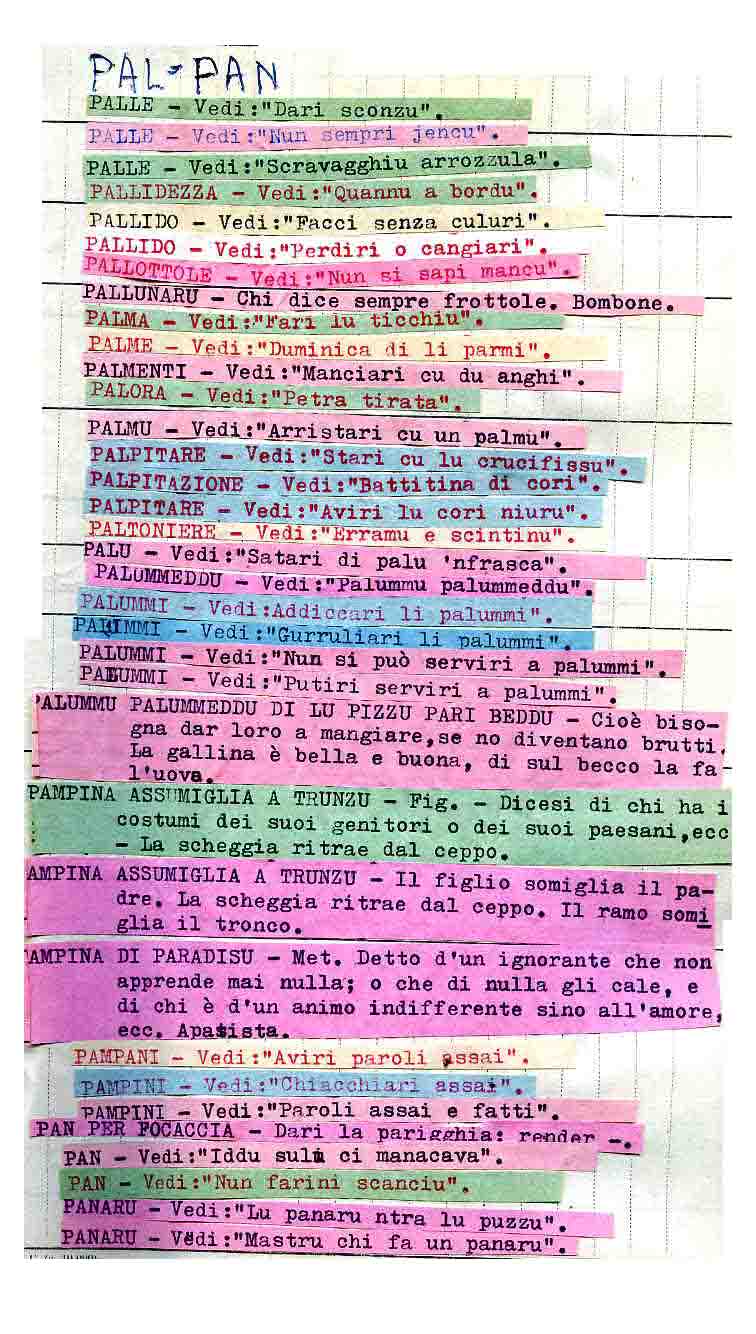 PAL-PAN
PALLE - Vedi:"Dari sconzu".
PALLE - Vedi:"Nun sempri jencu".
PALLE - Vedi:"Scravagghiu arrozzula".
PALLIDEZZA - Vedi:"Quannu a bordu".
PALLIDO - Vedi:"Facci senza culuri".
PALLIDO - Vedi:"Perdiri o cangiari".
PALLOTTOLE - Vedi:"Nun si sapi mancu".
PALLUNARU - Chi dice sempre frottole. Bombone.
PALMA - Vedi:"Fari lu ticchiu".
PALME - Vedi:"Duminica di li parmi".
PALMENTI - Vedi:"Manciari cu du anghi".
PALORA - Vedi:"Petra tirata".
PALMU - Vedi:"Arristari cu un palmu".
PALPITARE - Vedi:"Stari cu lu crucifissu".
PALPITAZIONE - Vedi:"Battitina di cori".
PALPITARE - Vedi:"Aviri lu cori niuru".
PALTONIERE - Vedi:"Erramu e scintinu".
PALU - Vedi:"Satari di palu 'nfrasca".
PALUMMEDDU - Vedi:"Palummu palummeddu".
PALUMMI - Vedi:Addiccari li palummi".
PALUMMI - Vedi:"Gurruliari li palummi".
PALUMMI - Vedi:"Nun si può serviri a palummi".
PALUMMI - Vedi:"Putiri serviri a palummi".
'ALUMMU PALUMMEDDU DI LU PIZZU PARI BEDDU - Cioè biso-
gna dar loro a mangiare,se no diventano brutti.
La gallina è bella e buona, di sul becco la fa
l'uova.
PAMPINA ASSUMIGLIA A TRUNZU - Fig. - Dicesi di chi ha i
costumi dei suoi genitori o dei suoi paesani,ecc
- La scheggia ritrae dal ceppo.
AMPINA ASSUMIGLIA A TRUNZU - Il figlio somiglia il pa-
dre. La scheggia ritrae dal ceppo. Il ramo somi
glia il tronco.
AMPINA DI PARADISU - Met. Detto d'un ignorante che non
apprende mai nulla; o che di nulla gli cale, e
di chi è d'un animo indifferente sino all'amore,
ecc. Apatista.
PAMPANI - Vedi:"Aviri paroli assai".
PAMPINI - Vedi:"Chiacchiari assai".
PAMPINI - Vedi:"Paroli assai e fatti".
PAN PER FOCACCIA - Dari la parigghia: render -.
PAN - Vedi:"Iddu sulu ci manacava".
PAN - Vedi:"Nun farini scanciu".
PANARU - Vedi:"Lu panaru ntra lu puzzu".
PANARU - Vedi:"Mastru chi fa un panaru".